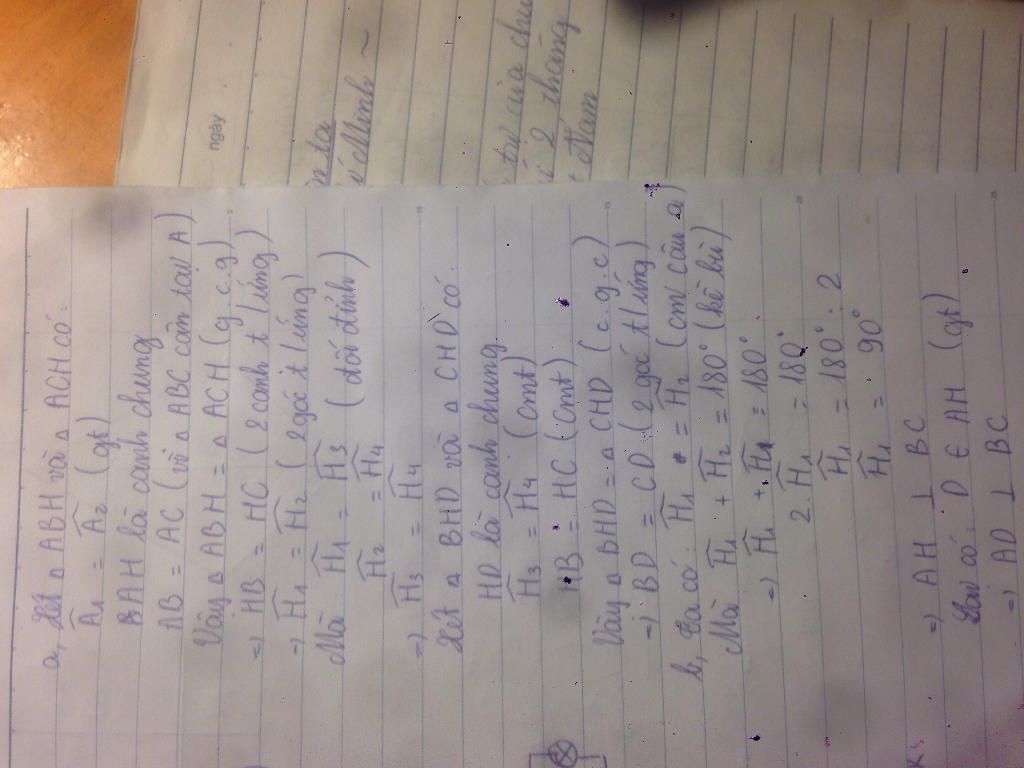 a, Xét Δ ABH và Δ ACH có:
Â1 = Â2 (gt)
BAH là cạnh chung
AB = AC (vì Δ ABC cân tại A)
Vậy Δ ABH = Δ ACH (g.c.g)
=> HB = HC (2 cạnh t/ứng)
=> Ĥ1 = Ĥ2 (2 góc t/ứng)
Mà Ĥ1 = Ĥ3 (đối đỉnh)
Ĥ2 = Ĥ4
=> Ĥ3 = Ĥ4
Xét Δ BHD và Δ CHD có:
HD là cạnh chung
Ĥ3 = Ĥ4 (cmt)
HB = HC (cmt)
Vậy Δ BHD = Δ CHD (c.g.c)
=> BD = CD (2 góc t/ứng)
b, Ta có: Ĥ1 = Ĥ2 (cm câu a)
Mà Ĥ1 + Ĥ2 = 180° (kề bù)
=> Ĥ1 + Ĥ1 = 180°
2.Ĥ1 = 180°
Ĥ1 = 180° : 2
Ĥ1 = 90°
=> AH ⊥ BC
Lại có: D ∈ AH (gt)
=> AD ⊥ BC
ngày
ta
Minh ~
tư của chu
2 tháng
Năm